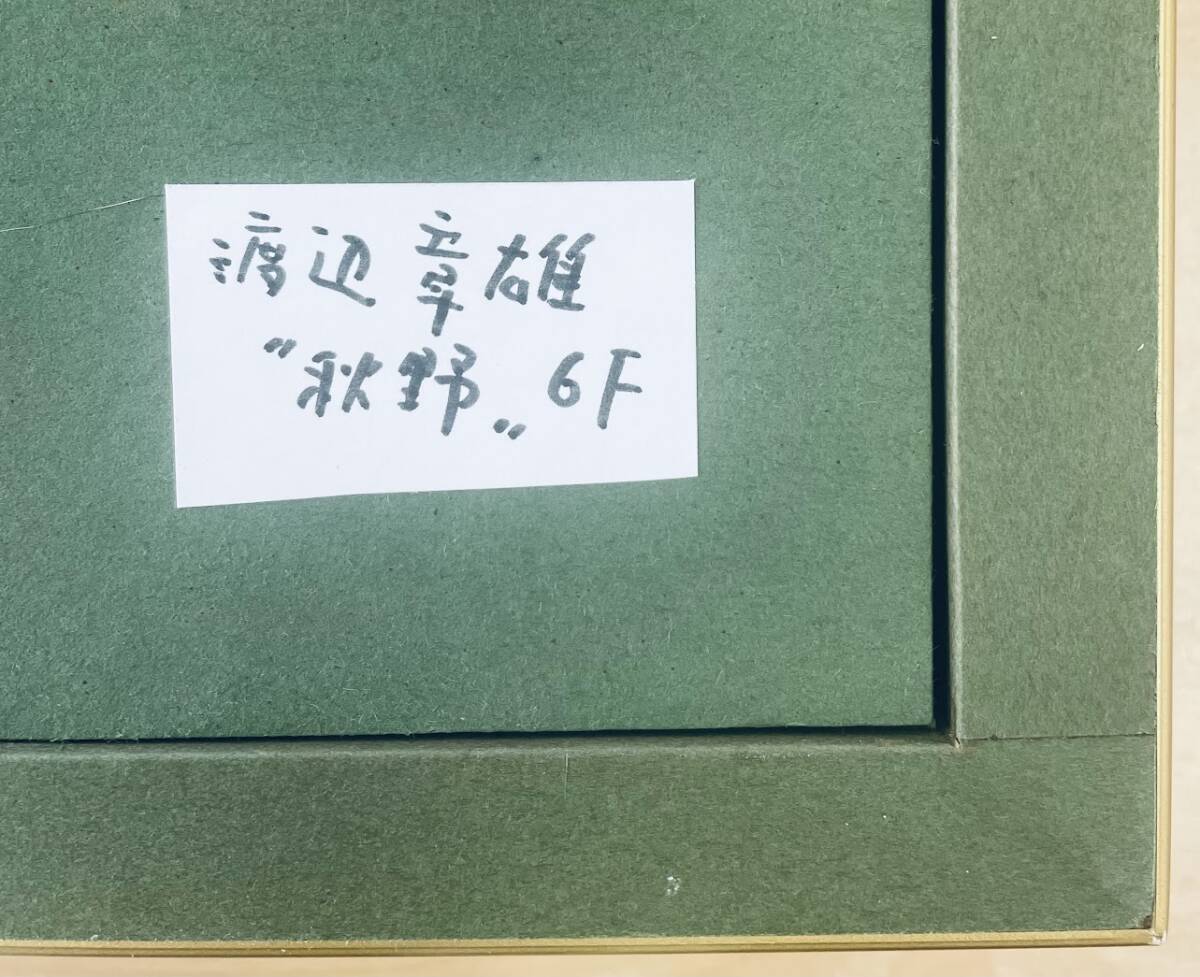 渡辺章雄
〃秋野〃 6F